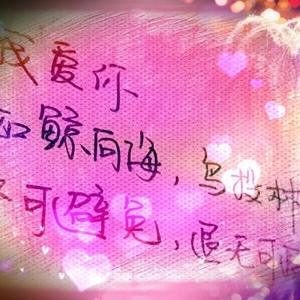 我爱你
如鲸向海，鸟投林
不可避免，退无可